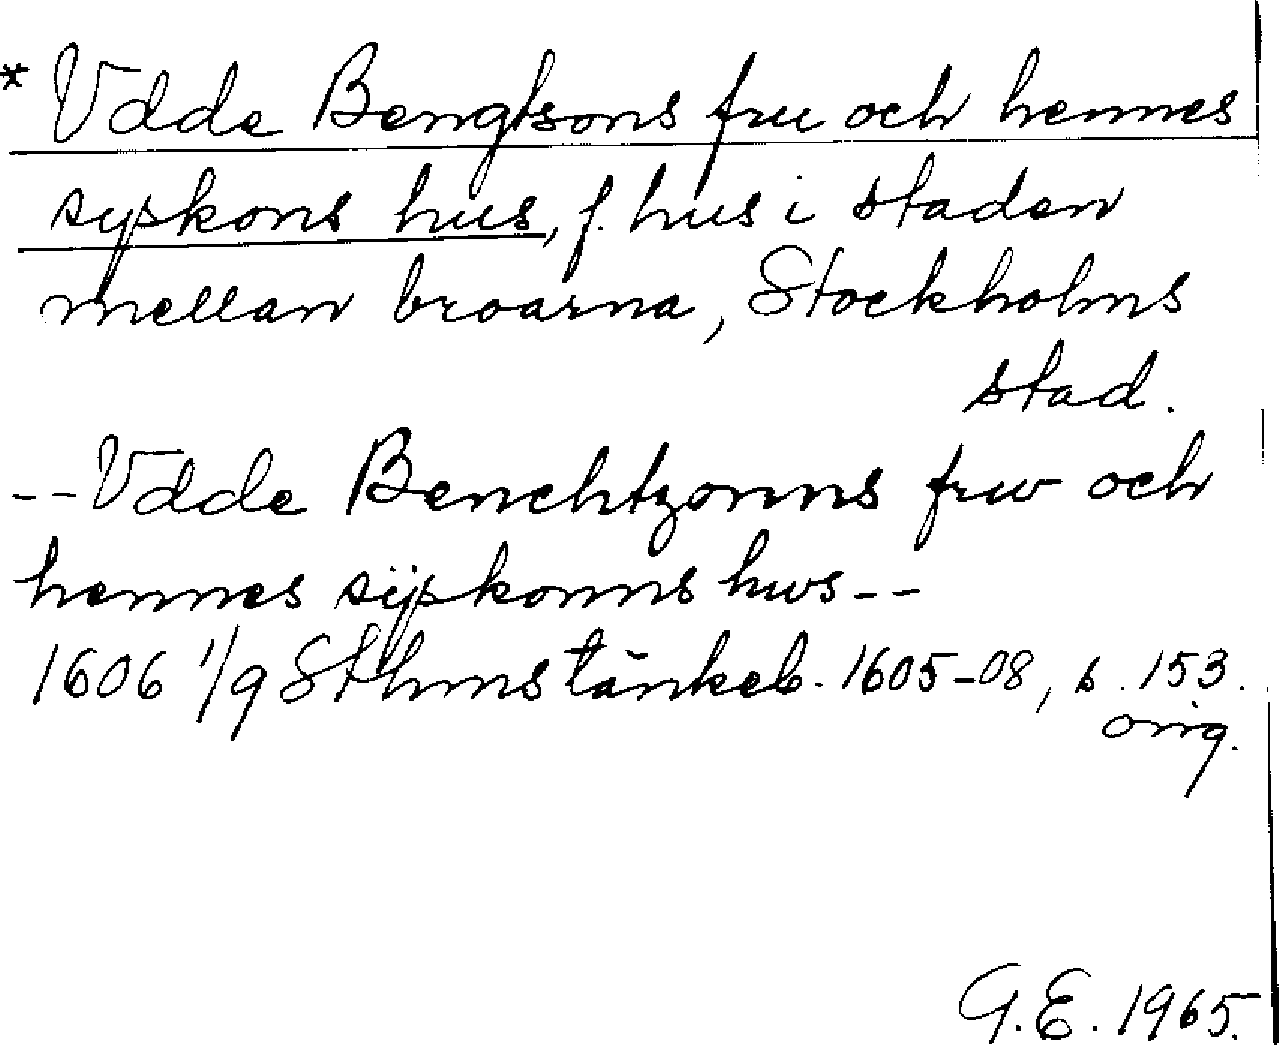 * Vdde Bengtsons fru och hennes
syskons hus, f. hus i staden
mellan broarna, Stockholms
stad.
-- Vdde Benchtzonns frw och
hennes sÿskonns hws --
1606 1/9 Sthms tänkeb. 1605-08, s. 153.
orig.
G.E. 1965.